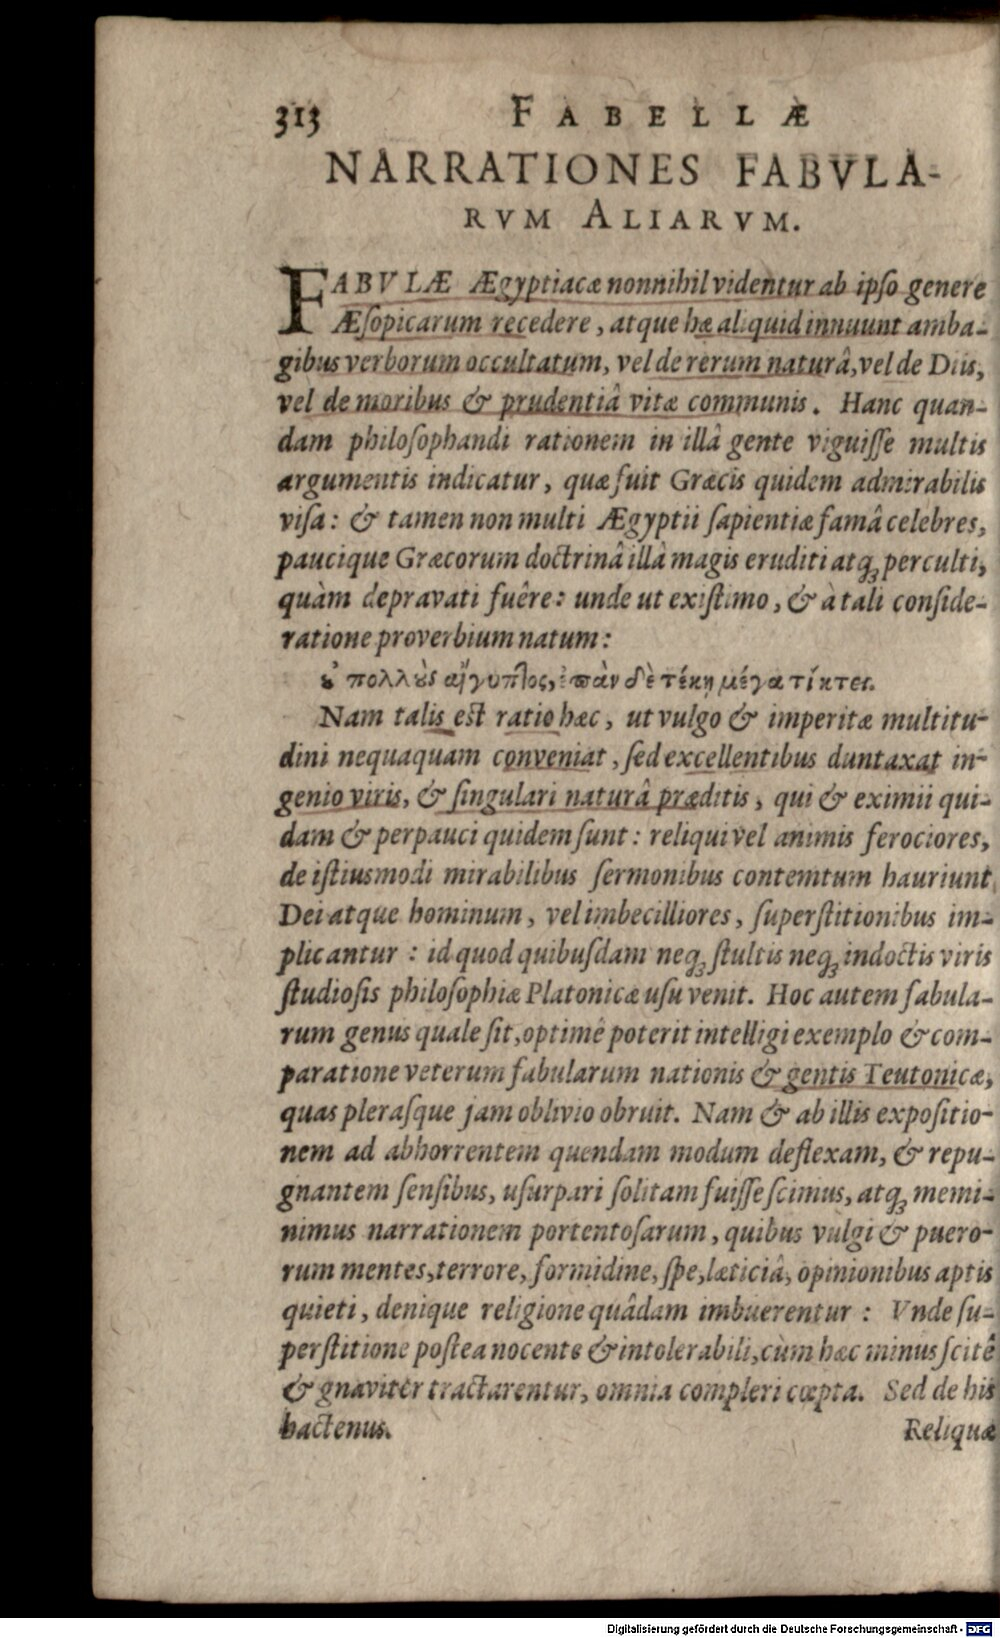 313 FABELLÆ
NARRATIONES FABVLA-
RVM ALIARVM.
FABVLÆ Ægyptiacæ nonnihil videntur ab ipſo genere
Æſopicarum recedere, atque hæ aliquid innuunt amba-
gibus verborum occultatum, vel de rerum naturâ, vel de Diis,
vel de moribus & prudentiâ vitæ communis. Hanc quan-
dam philoſophandi rationem in illâ gente viguiſſe multis
argumentis indicatur, quæ fuit Græcis quidem admirabilis
viſa: & tamen non multi Ægyptii ſapientiæ famâ celebres,
paucique Græcorum doctrinâ illâ magis eruditi atq; perculti,
quàm depravati fuêre: unde ut exiſtimo, & à tali conſide-
ratione proverbium natum:
οὐ πολλοὺς αἴγυπτος, ἐπὰν δὲ τέκῃ μέγα τίκτει.
Nam talis est ratio hæc, ut vulgo & imperitæ multitu-
dini nequaquam conveniat, ſed excellentibus duntaxat in-
genio viris, & ſingulari naturâ præditis, qui & eximii qui-
dam & perpauci quidem ſunt: reliqui vel animis ferociores,
de iſtiusmodi mirabilibus ſermonibus contemtum hauriunt
Dei atque hominum, vel imbecilliores, ſuperſtitionibus im-
plicantur: id quod quibuſdam neq; ſtultis neq; indoctis viris
ſtudioſis philoſophiæ Platonicæ uſu venit. Hoc autem fabula-
rum genus quale ſit, optimè poterit intelligi exemplo & com-
paratione veterum fabularum nationis & gentis Teutonicæ,
quas pleraſque jam oblivio obruit. Nam & ab illis expoſitio-
nem ad abhorrentem quendam modum deflexam, & repu-
gnantem ſenſibus, uſurpari ſolitam fuiſſe ſcimus, atq; memi-
nimus narrationem portentoſarum, quibus vulgi & puero-
rum mentes, terrore, formidine, ſpe, læticiâ, opinionibus aptis
quieti, denique religione quâdam imbuerentur: Vnde ſu-
perſtitione poſtea nocente & intolerabili, cùm hæc minus ſcitè
& gnaviter tractarentur, omnia compleri cœpta. Sed de his
hactenus.
Reliquæ
Digitalisierung gefördert durch die Deutsche Forschungsgemeinschaft - DFG